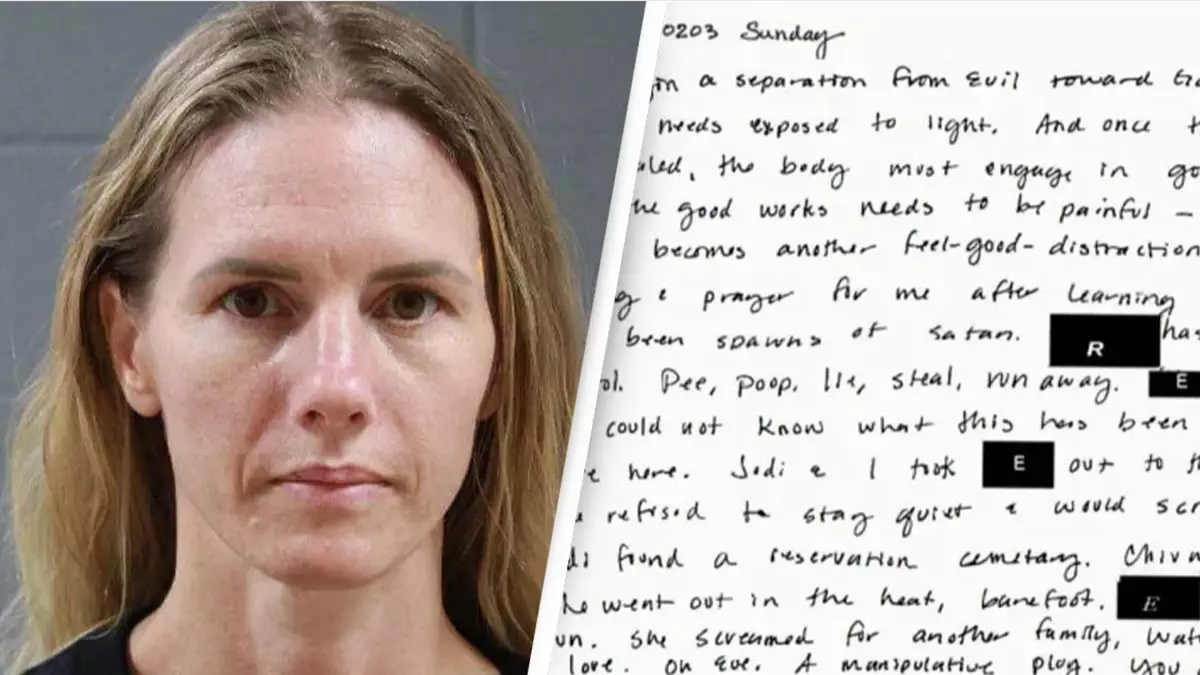 0203 Sunday
in a separation from Evil toward
needs exposed to light. And once
led, the body must engage in
the good works needs to be painful —
becomes another feel-good-distraction
prayer for me after learning
been spawns of satan. R has
ol. Pee, poop, lie, steal, run away. E
could not know what this has been
e here. Jodi & I took E out to
refused to stay quiet & would scr
di found a reservation cemetary.
he went out in the heat, barefoot. E
un. She screamed for another family,
love. On Eve. A manipulative plog. You